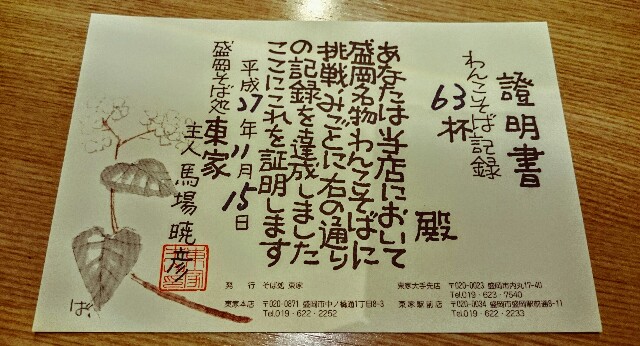 證明書
わんこそば記録
63杯
殿
あなたは当店において
盛岡名物わんこそばに
挑戦!みごとに右の通り
の記録を達成しました
ここにこれを証明します
平成27年11月15日
盛岡そば処 東家
主人 馬場暁彦
ば、
発行 そば処 東家
東家本店 〒020-0871 盛岡市中ノ橋通1丁目8-3
Tel.019-622-2252
東家大手先店 〒020-0023 盛岡市内丸17-40
Tel.019-623-7540
東家駅前店 〒020-0034 盛岡市盛岡駅前通8-11
Tel.019-622-2233